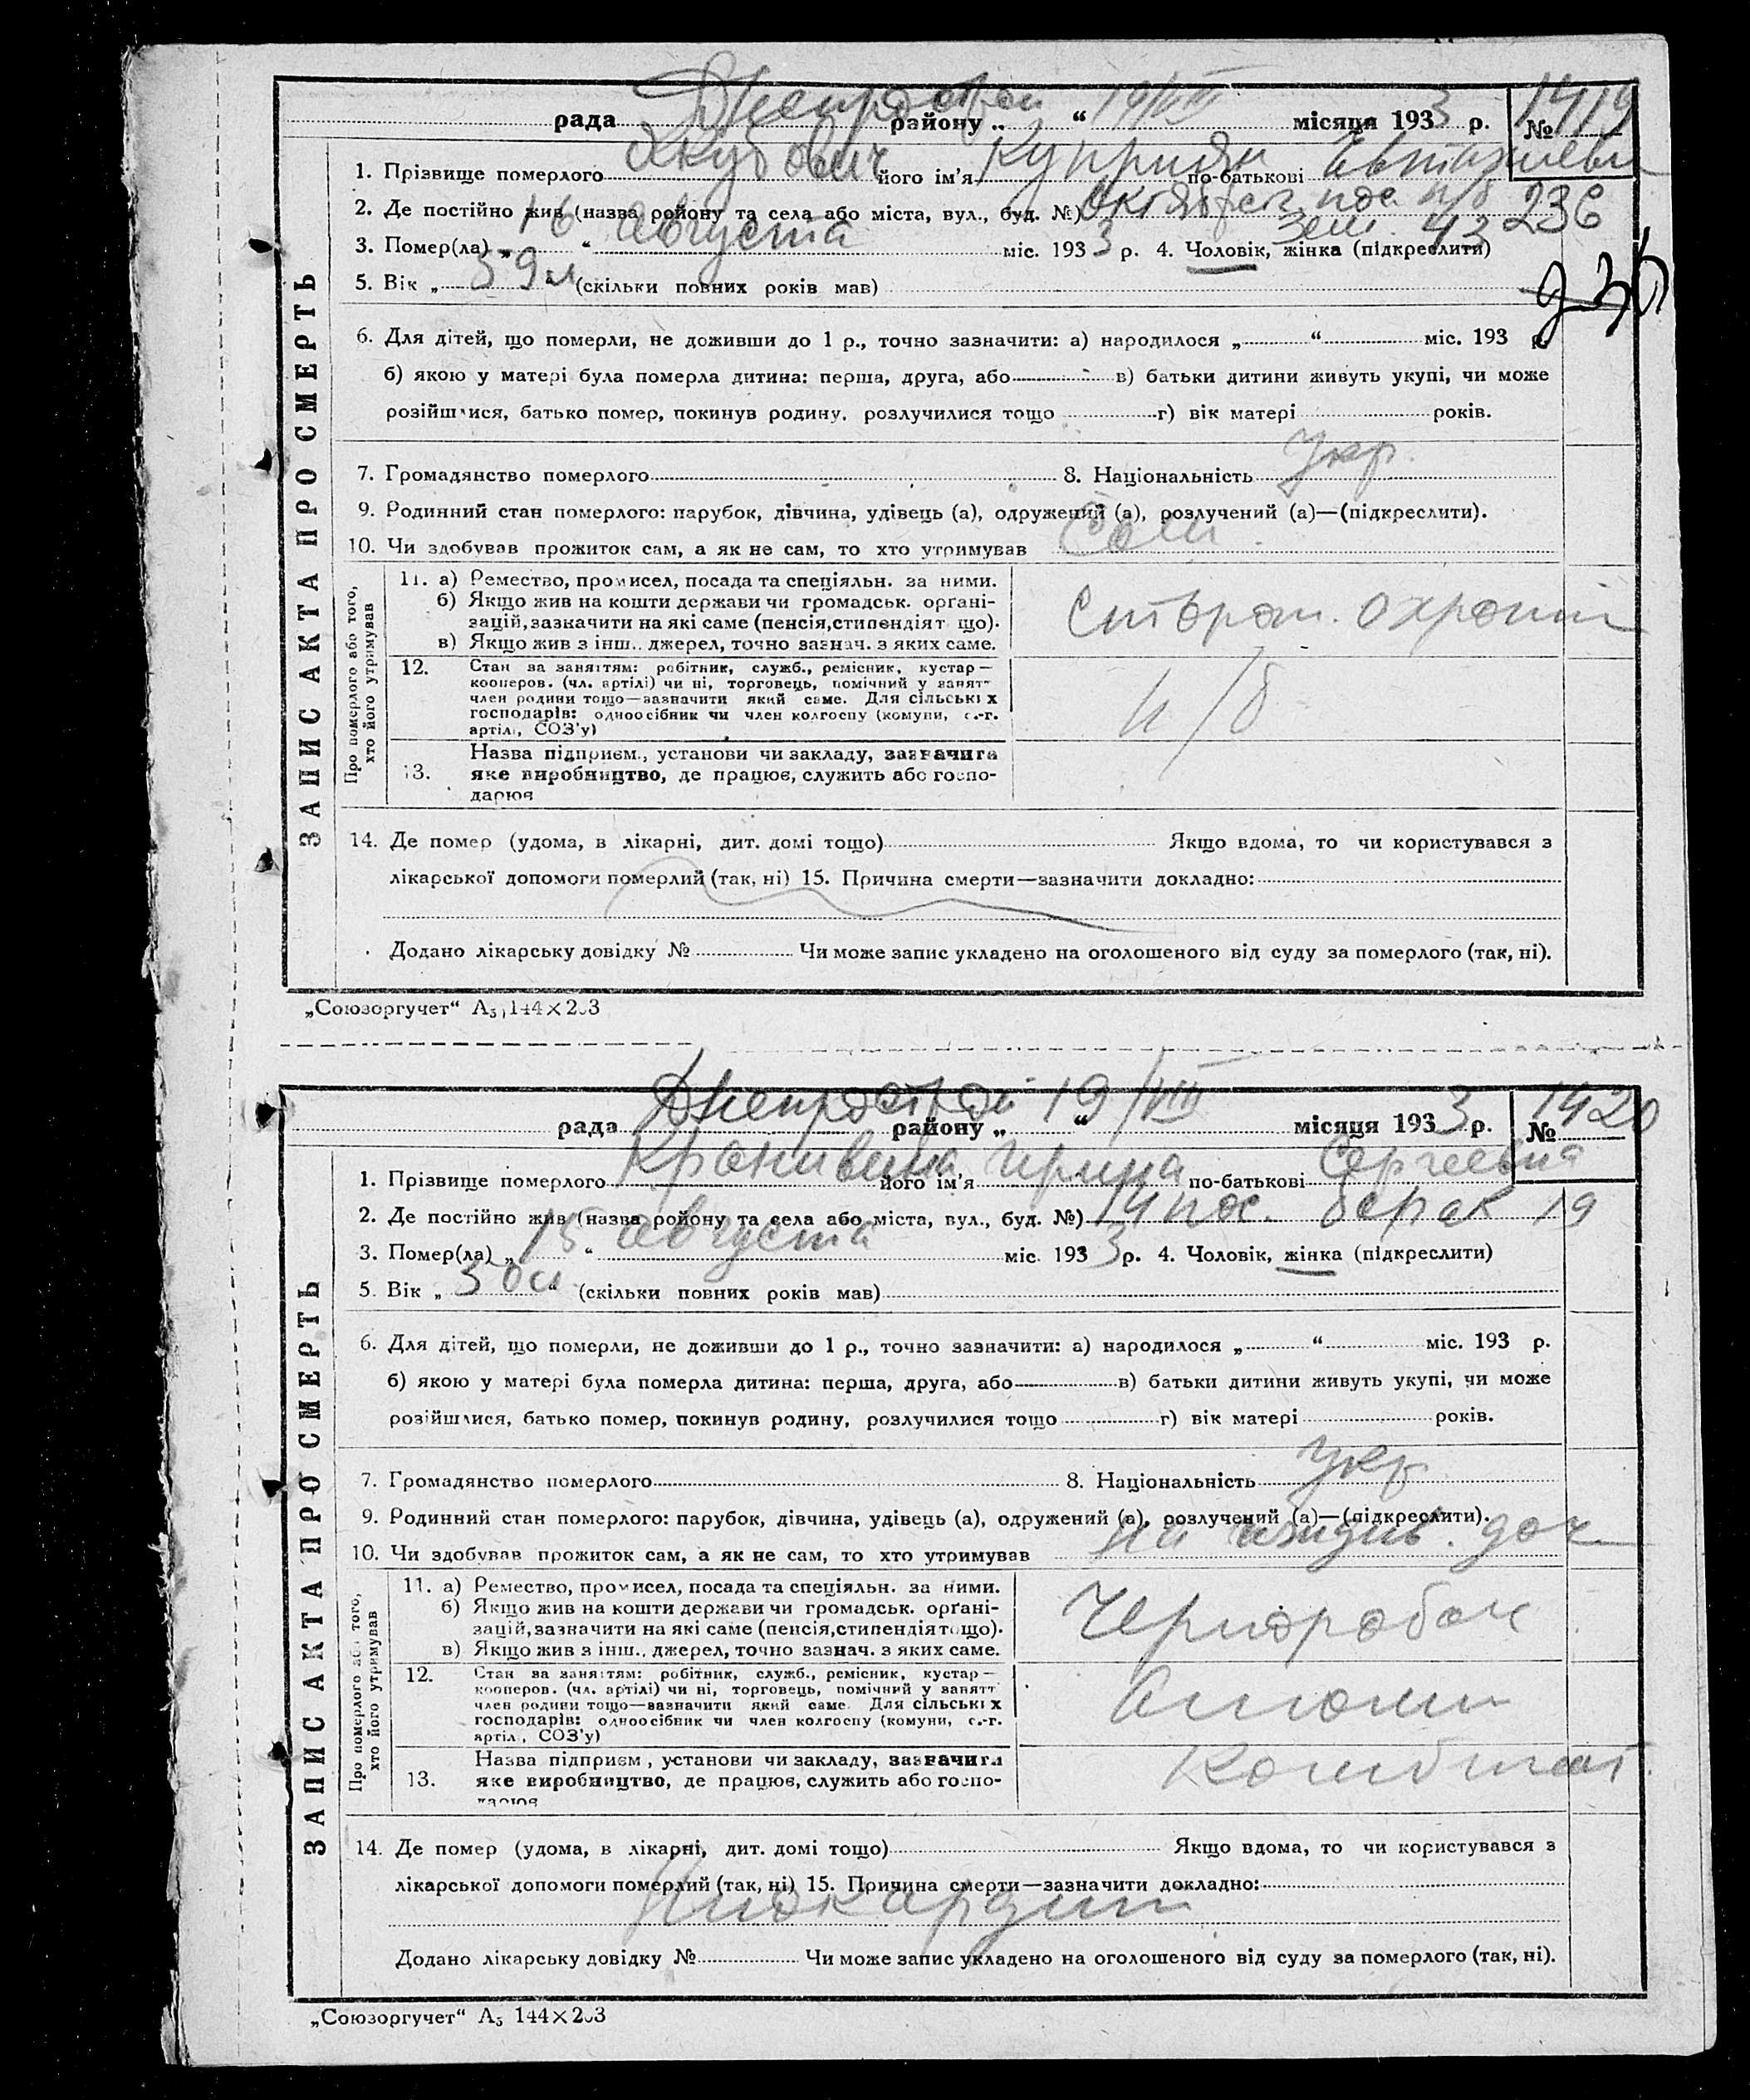 рада Днепрострой району „ 19/VIII “ місяця 1933 р. № 1419
1. Прізвище померлого Якубович його ім'я Куприян по-батькові
2. Де постійно жив (назва ройону та села або міста, вул., буд. №) Октябрск. пос. 236
Зем. 43
3. Помер(ла) „ 16 “ Августа міс. 1933 р. 4. Чоловік, жінка (підкреслити)
5. Вік „ 39 л (скільки повних років мав)
236
6. Для дітей, що померли, не доживши до 1 р., точно зазначити: а) народилося „ “ міс. 193 р.
б) якою у матері була померла дитина: перша, друга, або в) батьки дитини живуть укупі, чи може
розійшлися, батько помер, покинув родину, розлучилися тощо г) вік матері років.
7. Громадянство померлого 8. Національність Укр.
9. Родинний стан померлого: парубок, дівчина, удівець (а), одружений (а), розлучений (а)—(підкреслити).
10. Чи здобував прожиток сам, а як не сам, то хто утримував Сам.
ЗАПИС АКТА ПРО СМЕРТЬ
Про померлого або того, хто його утримував
11. а) Ремество, промисел, посада та спеціяльн. за ними.
б) Якщо жив на кошти держави чи громадськ. органі-
зацій, зазначити на які саме (пенсія, стипендіят що).
в) Якщо жив з інш.. джерел, точно зазнач. з яких саме.
12. Стан за заняттям: робітник, служб., ремісник, кустар—
кооперов. (чл. артілі) чи ні, торговець, помічний у занятт
член родини тощо—зазначити який саме. Для сільських
господарів: одноосібник чи член колгоспу (комуни, с.-г.
артілі, СОЗ'у)
Назва підприєм., установи чи закладу, зазначити
13. яке виробництво, де працює, служить або госпо-
дарює
14. Де помер (удома, в лікарні, дит. домі тощо) Якщо вдома, то чи користувався з
лікарської допомоги померлий (так, ні) 15. Причина смерти—зазначити докладно:
Додано лікарську довідку № Чи може запис укладено на оголошеного від суду за померлого (так, ні).
„Союзоргучет“ А₅ 144×203
рада Днепрострой району „ 19/VIII “ місяця 1933 р. № 1420
1. Прізвище померлого Кропивена його ім'я Ирина по-батькові Сергеевна
2. Де постійно жив (назва ройону та села або міста, вул., буд. №) 14 пос. барак 19
3. Помер(ла) „ 15 “ августа міс. 1933 р. 4. Чоловік, жінка (підкреслити)
5. Вік „ “ (скільки повних років мав)
6. Для дітей, що померли, не доживши до 1 р., точно зазначити: а) народилося „ “ міс. 193 р.
б) якою у матері була померла дитина: перша, друга, або в) батьки дитини живуть укупі, чи може
розійшлися, батько помер, покинув родину, розлучилися тощо г) вік матері років.
7. Громадянство померлого 8. Національність Укр
9. Родинний стан померлого: парубок, дівчина, удівець (а), одружений (а), розлучений (а)—(підкреслити).
10. Чи здобував прожиток сам, а як не сам, то хто утримував на иждив. доч
ЗАПИС АКТА ПРО СМЕРТЬ
Про померлого або того, хто його утримував
11. а) Ремество, промисел, посада та спеціяльн. за ними.
б) Якщо жив на кошти держави чи громадськ. органі-
зацій, зазначити на які саме (пенсія, стипендіят тощо).
в) Якщо жив з інш., джерел, точно зазнач. з яких саме.
Чернораб
12. Стан за заняттям: робітник, служб., ремісник, кустар—
кооперов. (чл. артілі) чи ні, торговець, помічний у занятт
член родини тощо—зазначити який саме. Для сільських
господарів: одноосібник чи член колгоспу (комуни, с.-г.
артілі, СОЗ'у)
Назва підприєм, установи чи закладу, зазначити
13. яке виробництво, де працює, служить або госпо-
дарює
Комбинат
14. Де помер (удома, в лікарні, дит. домі тощо) Якщо вдома, то чи користувався з
лікарської допомоги померлий (так, ні) 15. Причина смерти—зазначити докладно:
Додано лікарську довідку № Чи може запис укладено на оголошеного від суду за померлого (так, ні).
„Союзоргучет“ А₅ 144×203